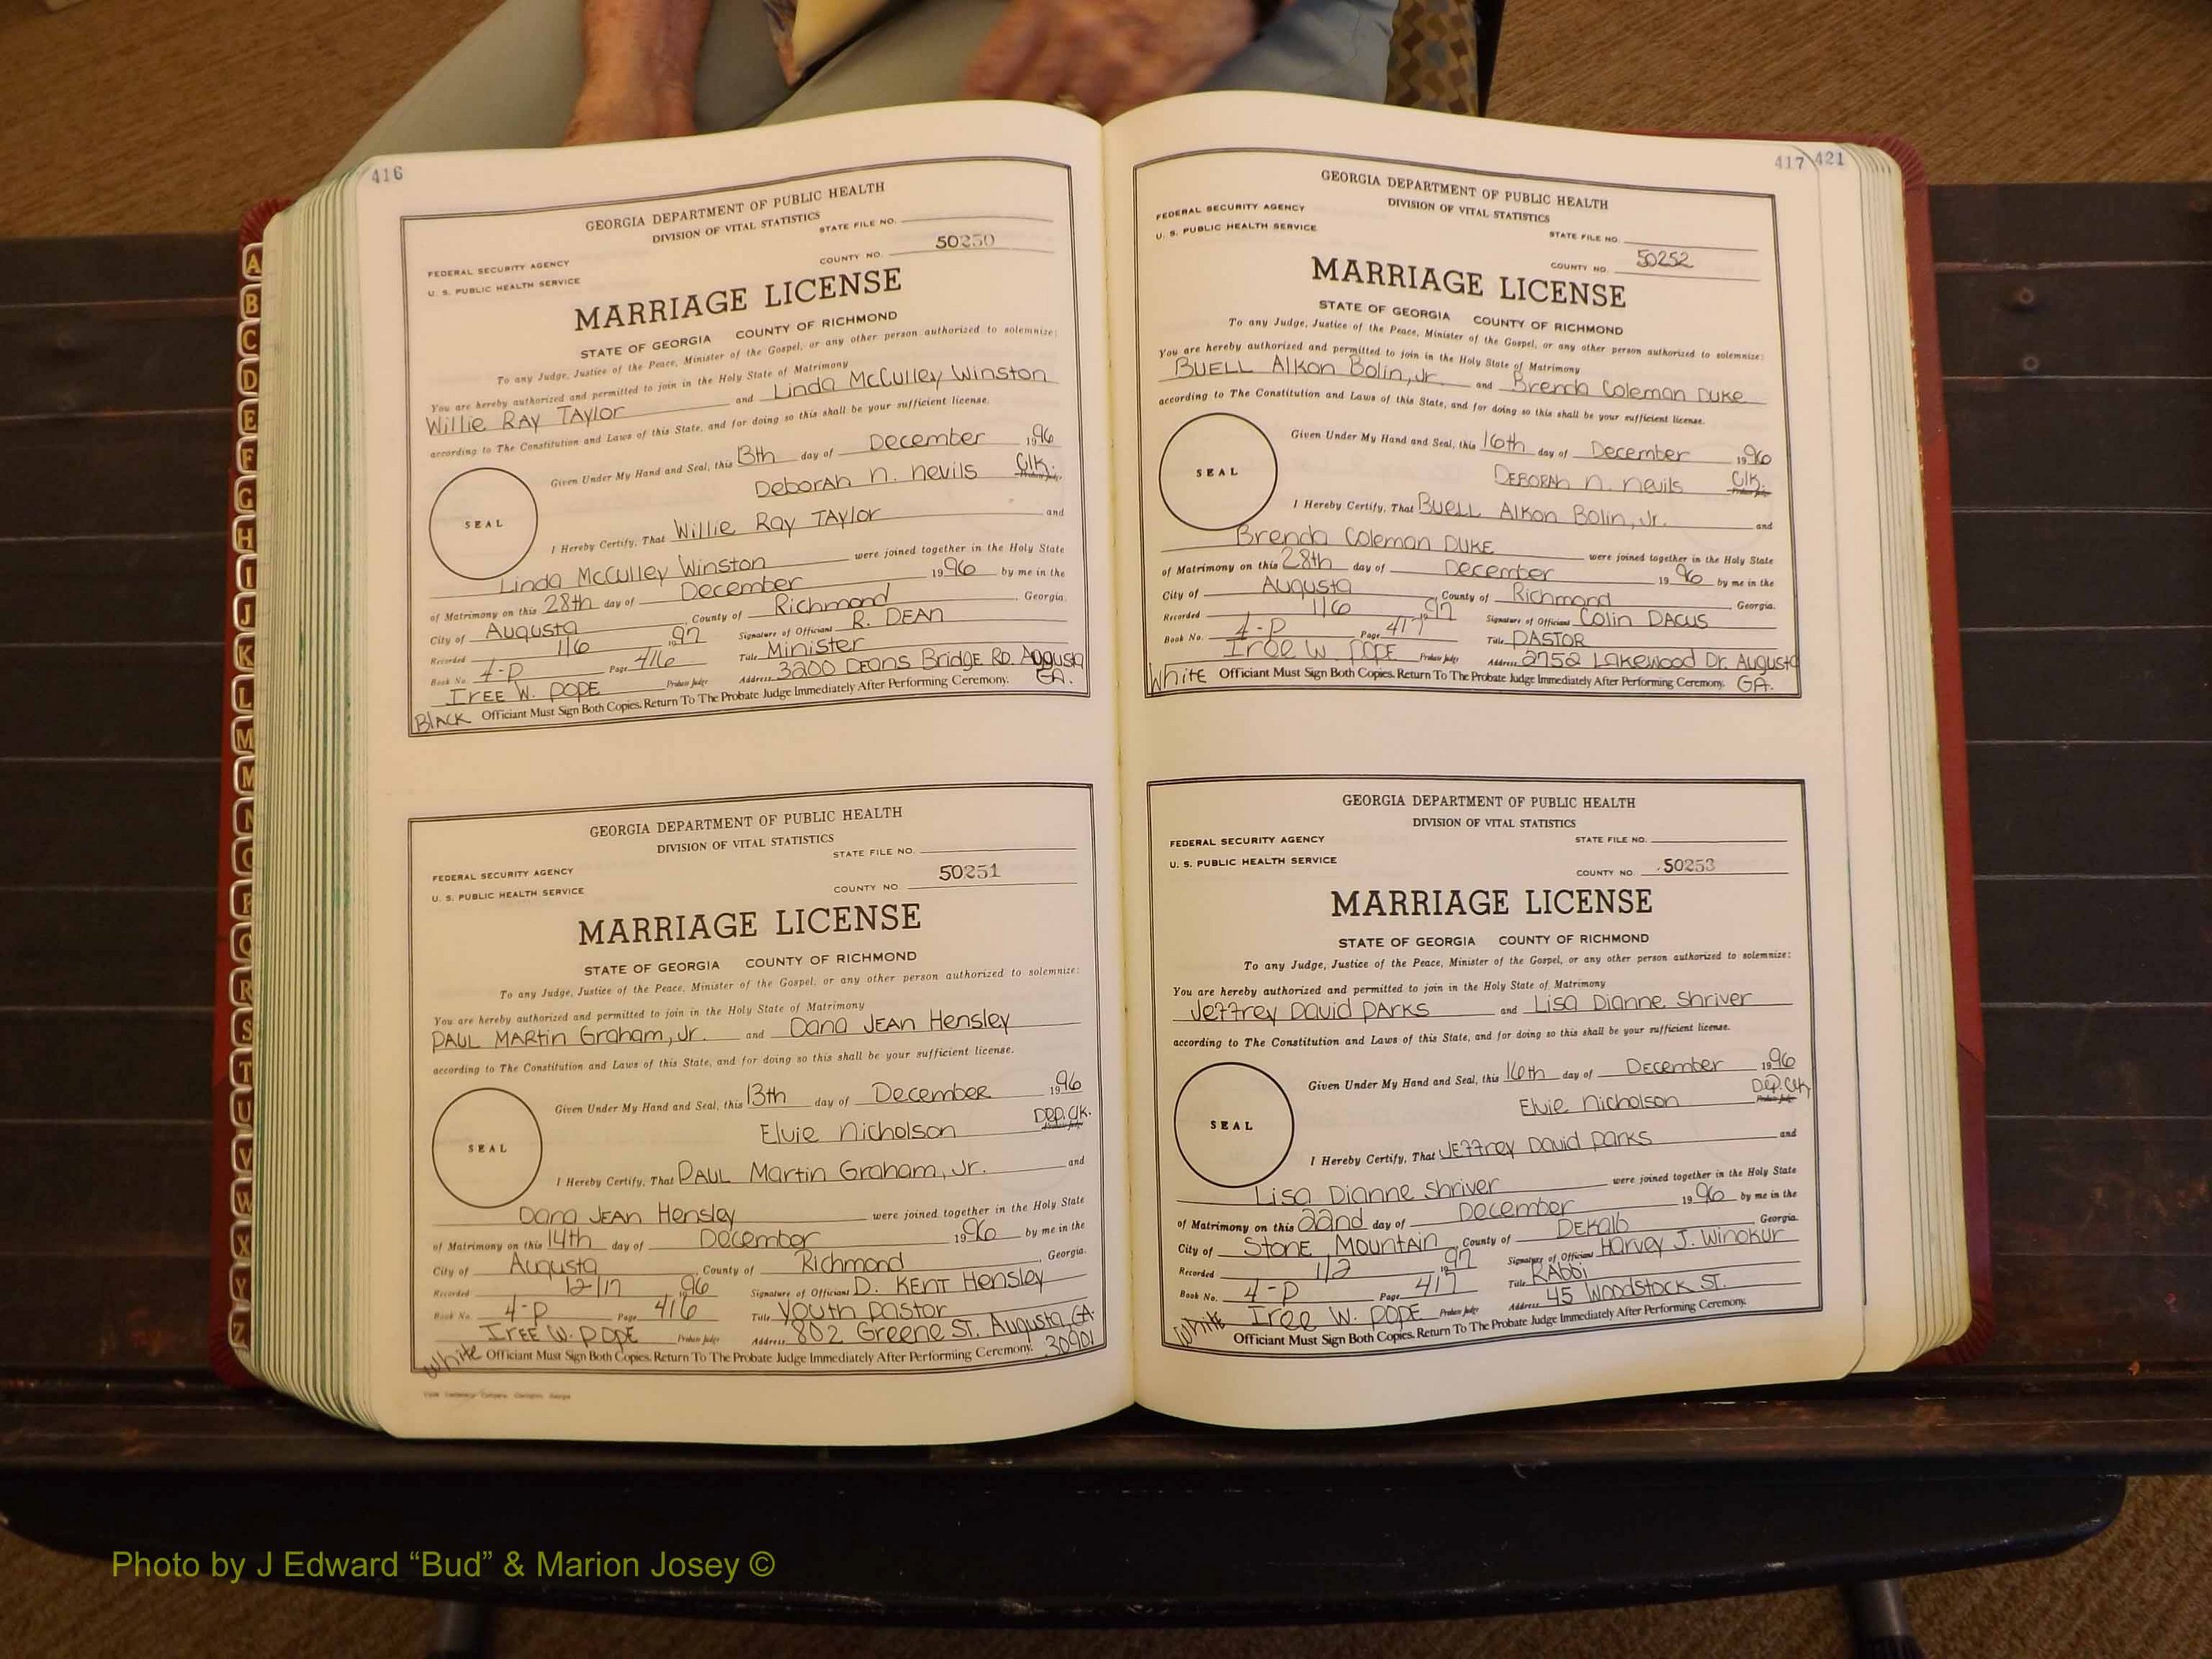 416
GEORGIA DEPARTMENT OF PUBLIC HEALTH
DIVISION OF VITAL STATISTICS
STATE FILE NO.
FEDERAL SECURITY AGENCY
U. S. PUBLIC HEALTH SERVICE
COUNTY NO. 50250
MARRIAGE LICENSE
STATE OF GEORGIA COUNTY OF RICHMOND
To any Judge, Justice of the Peace, Minister of the Gospel, or any other person authorized to solemnize:
You are hereby authorized and permitted to join in the Holy State of Matrimony
Willie RAY TAYlor and Linda McCulley Winston
according to The Constitution and Laws of this State, and for doing so this shall be your sufficient license.
Given Under My Hand and Seal, this 13th day of December 1996
DeborAH n. nevils Clk.
SEAL
I Hereby Certify, That Willie Ray TAYlor and
Linda McCulley Winston were joined together in the Holy State
of Matrimony on this 28th day of December 1996 by me in the
City of Augusta, County of Richmond, Georgia.
Recorded 1/6 1997 Signature of Official R. DEAN
Book No. 4-P Page 416 Title Minister
IREE W. POPE Probate Judge Address 3200 Deans Bridge RD. Augusta GA.
BLACK Officiant Must Sign Both Copies. Return To The Probate Judge Immediately After Performing Ceremony.
GEORGIA DEPARTMENT OF PUBLIC HEALTH
DIVISION OF VITAL STATISTICS
STATE FILE NO.
FEDERAL SECURITY AGENCY
U. S. PUBLIC HEALTH SERVICE
COUNTY NO 50251
MARRIAGE LICENSE
STATE OF GEORGIA COUNTY OF RICHMOND
To any Judge, Justice of the Peace, Minister of the Gospel, or any other person authorized to solemnize:
You are hereby authorized and permitted to join in the Holy State of Matrimony
PAUL MARtin Graham, Jr. and Dana JEAN Hensley
according to The Constitution and Laws of this State, and for doing so this shall be your sufficient license.
Given Under My Hand and Seal, this 13th day of December 1996
Elvie Nicholson DEP. Clk.
SEAL
I Hereby Certify, That PAUL Martin Graham, Jr. and
Dana JEAN Hensley were joined together in the Holy State
of Matrimony on this 14th day of December 1996 by me in the
City of Augusta, County of Richmond, Georgia.
Recorded 12/17 1996 Signature of Official D. KENT Hensley
Book No. 4-P Page 416 Title Youth pastor
IREE W. POPE Probate Judge Address 802 Greene ST. Augusta, GA. 30901
White Officiant Must Sign Both Copies. Return To The Probate Judge Immediately After Performing Ceremony.
417 421
GEORGIA DEPARTMENT OF PUBLIC HEALTH
DIVISION OF VITAL STATISTICS
FEDERAL SECURITY AGENCY
U. S. PUBLIC HEALTH SERVICE
STATE FILE NO.
COUNTY NO. 50252
MARRIAGE LICENSE
STATE OF GEORGIA COUNTY OF RICHMOND
To any Judge, Justice of the Peace, Minister of the Gospel, or any other person authorized to solemnize:
You are hereby authorized and permitted to join in the Holy State of Matrimony
BUELL Alkon Bolin, Jr. and Brenda Coleman DUKE
according to The Constitution and Laws of this State, and for doing so this shall be your sufficient license.
Given Under My Hand and Seal, this 16th day of December 1996
DEBORAH n. nevils Clk.
SEAL
I Hereby Certify, That BUELL Alkon Bolin, Jr. and
Brenda Coleman DUKE were joined together in the Holy State
of Matrimony on this 28th day of December 1996 by me in the
City of Augusta, County of Richmond, Georgia.
Recorded 1/6 1997 Signature of Official Colin DACUS
Book No. 4-P Page 417 Title PASTOR
Iree W. POPE Probate Judge Address 2752 Lakewood Dr. Augusta GA.
White Officiant Must Sign Both Copies. Return To The Probate Judge Immediately After Performing Ceremony.
GEORGIA DEPARTMENT OF PUBLIC HEALTH
DIVISION OF VITAL STATISTICS
FEDERAL SECURITY AGENCY
STATE FILE NO.
U. S. PUBLIC HEALTH SERVICE
COUNTY NO. 50253
MARRIAGE LICENSE
STATE OF GEORGIA COUNTY OF RICHMOND
To any Judge, Justice of the Peace, Minister of the Gospel, or any other person authorized to solemnize:
You are hereby authorized and permitted to join in the Holy State of Matrimony
Jeffrey David PARKS and Lisa Dianne Shriver
according to The Constitution and Laws of this State, and for doing so this shall be your sufficient license.
Given Under My Hand and Seal, this 16th day of December 1996
Elvie Nicholson DEP. Clk.
SEAL
I Hereby Certify, That JEffrey David Parks and
Lisa Dianne Shriver were joined together in the Holy State
of Matrimony on this 22nd day of December 1996 by me in the
City of STONE MOUNTAIN, County of DEKalb, Georgia.
Recorded 1/2 1997 Signature of Official Harvey J. Winokur
Book No. 4-P Page 417 Title RAbbi
Iree W. POPE Probate Judge Address 45 WOODSTOCK ST.
White Officiant Must Sign Both Copies. Return To The Probate Judge Immediately After Performing Ceremony.
A
B
C
D
E
F
G
H
I
J
K
L
M
M
N
O
P
Q
R
S
T
U
V
W
X
Y
Z
Photo by J Edward “Bud” & Marion Josey ©